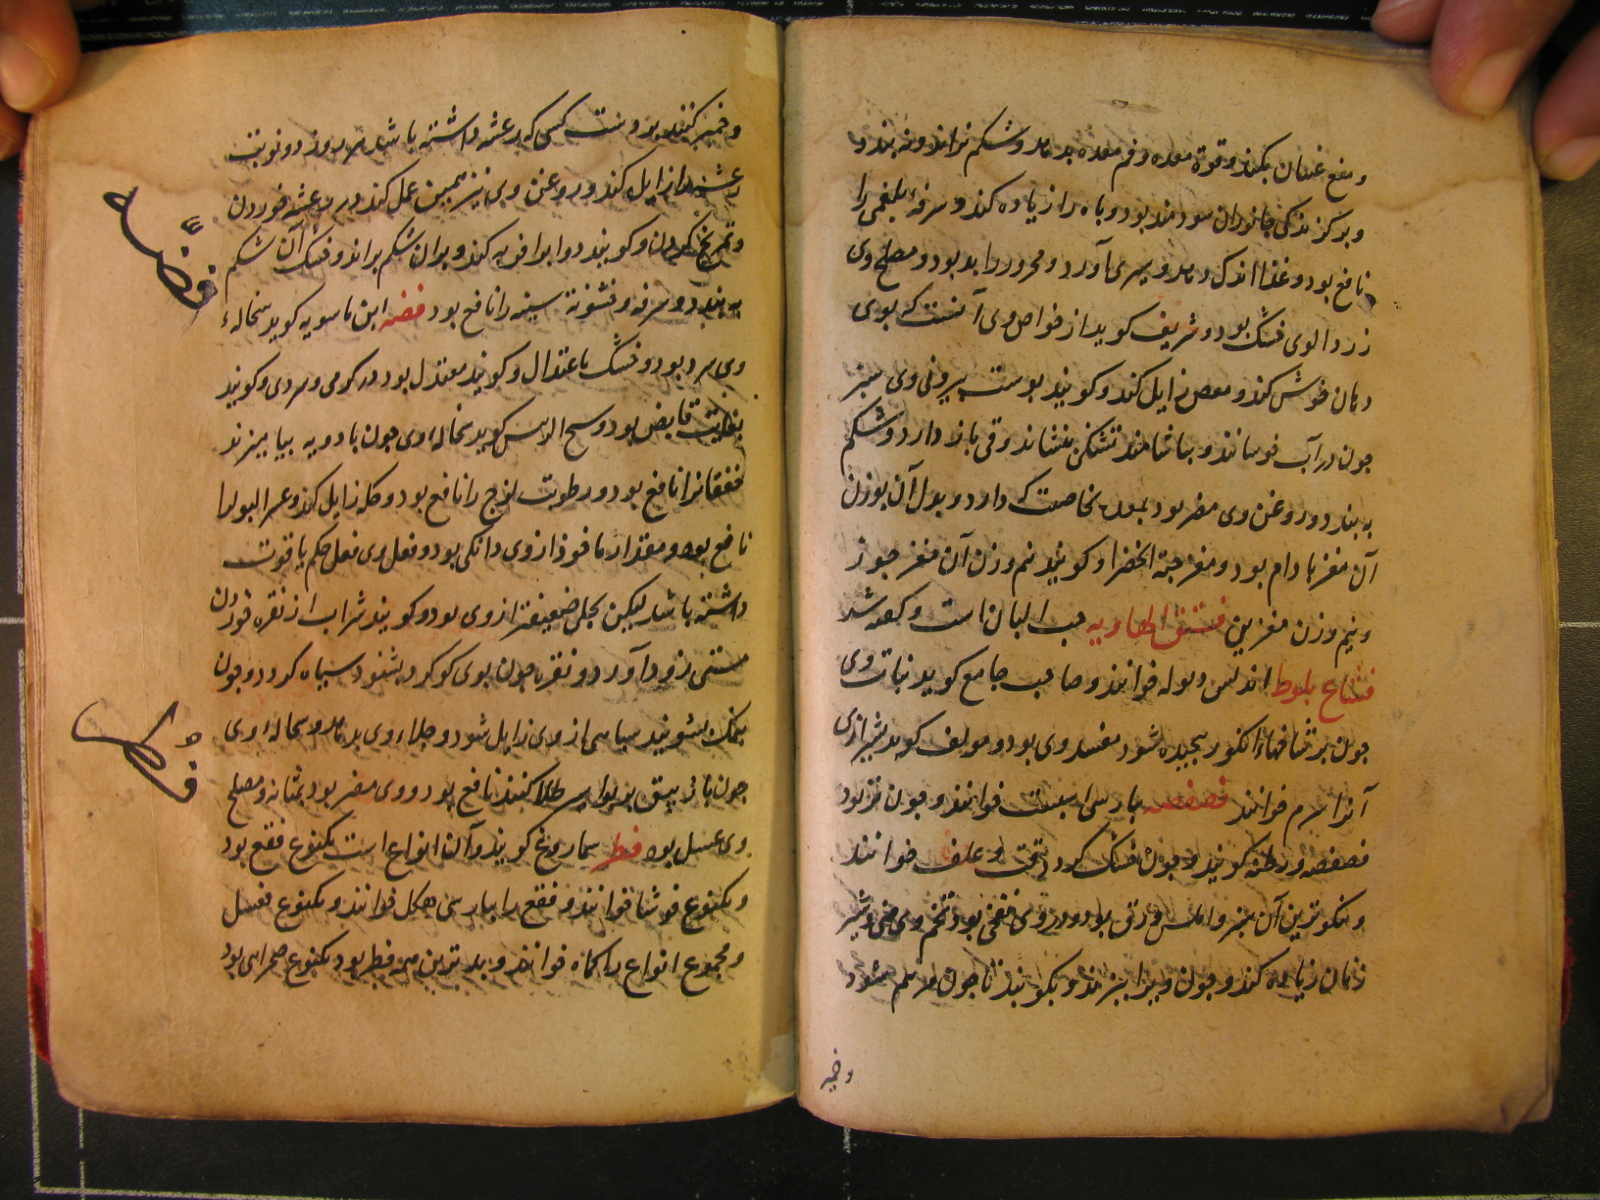 و منع غثیان بکند و قوة معده و فم معده بدهد و شکم نراند و نه بندد
و بر کزندکی جانوران سودمند بود و باه را زیاده کند و سرفهٔ بلغمی را
نافع بود و غذا اندک دهد و محرور را بد بود و مصلح وی
زردالوی خشک بود و شریف کوید از خواص وی آنست که بوی
دهان خوش کند و مغص زایل کند و کویند پوست بیرونی وی سبز
چون در آب خوسانند و بیاشامند تشنکی بنشاند و قی باز دارد و شکم
به بندد و روغن وی مضر بود بمعده بخاصیت که دارد و بدل آن بوزن
آن مغز بادام بود و مغز حبة الخضرا و کویند نیم وزن آن مغز جوز
و نیم وزن مغزین فستق الهاویه حب البان است و کفته شد
فشاغ بلوط اندلس خوانند و صاحب جامع کوید نبات وی
چون بر شاخهاء انکور پیچیده شود مفسد وی بود و مولف کوید بشیرازی
آنرا خوانند فصفصه بپارسی اسپست خوانند و چون تر بود
فصفصه و رطبه کویند و چون خشک کردد قت و علف خوانند
و نیکوترین آن سبز و املس ورق بود و در وی نفخی بود و تخم وی منی و شیر
زنان زیاده کند و چون ویرا بپزند و بکوبند تا چون مرهم شود
و خمیر
و خمیر کنند بر دست کسی که رعشه داشته باشد هر روز دو نوبت
رعشه را زایل کند و روغن وی نیز همین عمل کند در رعشه خوردن
و تمریخ کردن و کویند دواب را فربه کند و بران شکم براند و خشک آن شکم
به بندد و سرفه و خشونة سینه را نافع بود فضه ابن ماسویه کوید سحالهٔ
وی سرد بود و خشک باعتدال و کویند معتدل بود در کرمی و سردی و کویند
بغایت قابض بود و مسیح کوید سحالهٔ وی چون با ادویه بیامیزند
خفقانرا نافع بود و رطوبت لزج را نافع بود و کله زایل کند و عسر البول را
نافع بود و مقدار ماخوذ از وی دانکی بود و فعل وی فعل حکم یاقوت
داشته باشد لیکن ضعیفتر از وی بود و کویند شراب از نقره خوردن
مستی زود آورد و نقره چون بوی کوکرد بشنود سیاه کردد و چون
بنمک بشویند سیاهی از وی زایل شود و جلاء وی بدهد و سحالهٔ وی
چون با زیبق بر بواسیر طلا کنند نافع بود و وی مضر بود بمثانه و مصلح
وی عسل بود فطر سماروغ کویند و آن انواع است یکنوع فقع بود
و یکنوع خوشنا خوانند و فقع را بپارسی هکل خوانند و یکنوع غسل
و مجموع انواع را کماه خوانند و بدترین همه فطر بود یکنوع صحرایی بود
فضه
فطر